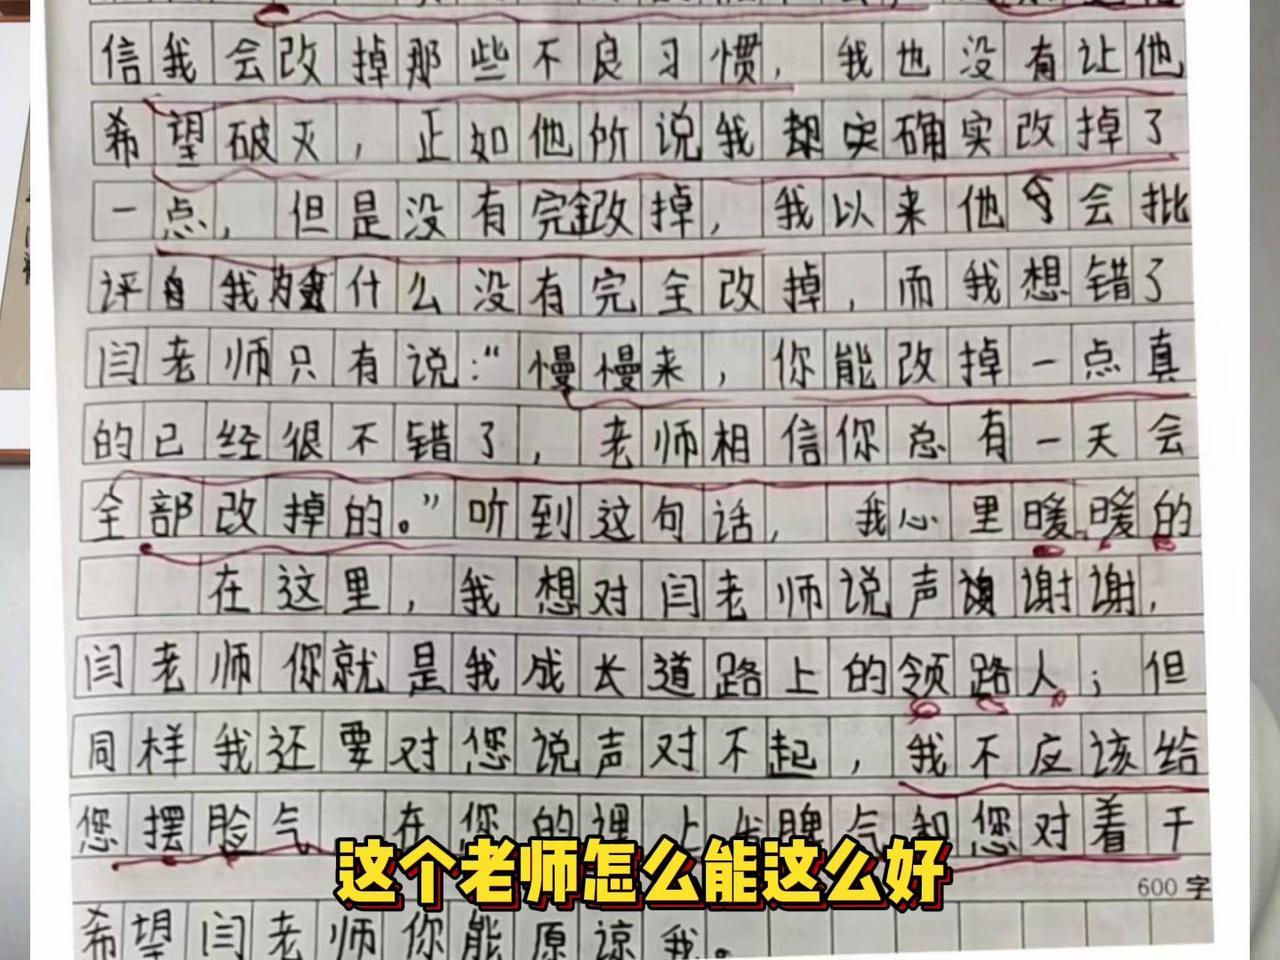 信我会改掉那些不良习惯，我也没有让他
希望破灭，正如他所说我却实确实改掉了
一点，但是没有完全改掉，我以来他会批
评我为什么没有完全改掉，而我想错了
闫老师只有说：“慢慢来，你能改掉一点真
的已经很不错了，老师相信你总有一天会
全部改掉的。”听到这句话，我心里暖暖的
在这里，我想对闫老师说声谢谢，
闫老师你就是我成长道路上的领路人；但
同样我还要对您说声对不起，我不应该给
您摆脸气 在您的课上发脾气和您对着干
这个老师怎么能这么好
600字
希望闫老师你能原谅我。